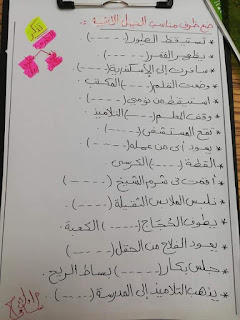 ضع ظرف مناسب للجمل الآتية :-
* تستيقظ الطيور (-----)
* يظهر القمر (-----)
* سافرت إلى الإسكندرية (-----)
* وضعت القلم (----) المكتب.
* استيقظ من نومي (-----)
* وقف المعلم (---) التلاميذ.
* تقع المستشفى (-----)
* يعود أبي من عمله (----)
* القطة (----) الكرسي
* أقمت في شرم الشيخ (-----)
* نلبس الملابس الثقيلة (----)
* يطوف الحُجَّاج (----) الكعبة.
* يعود الفلاح من الحقل (----)
* جلس بكار (-----) بساط الريح.
* يذهب التلاميذ إلى المدرسة (----)